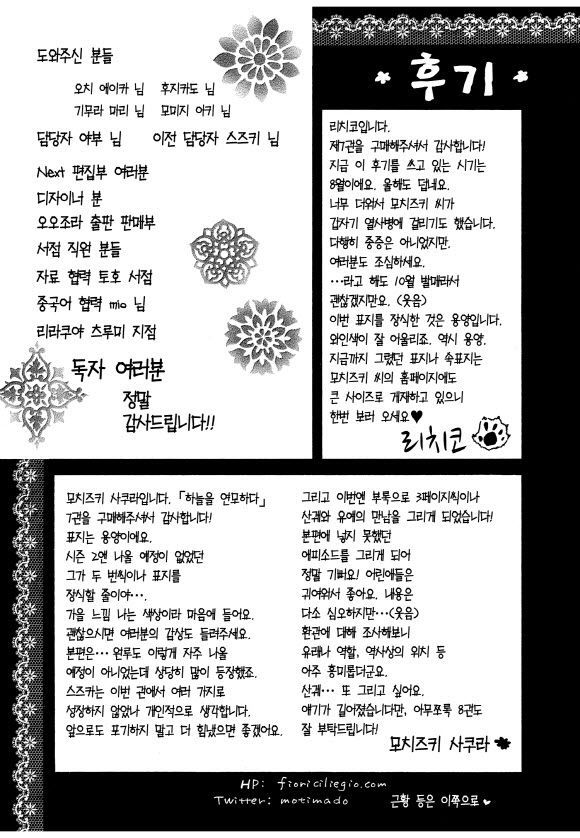 도와주신 분들
오치 에이카 님 후지카도 님
기무라 마리 님 모미지 아키 님
담당자 야부 님 이전 담당자 스즈키 님
Next 편집부 여러분
디자이너 분
오오조라 출판 판매부
서점 직원 분들
자료 협력 토호 서점
중국어 협력 mio 님
리라쿠야 츠루미 지점
독자 여러분
정말
감사드립니다!!
후기
리치코입니다.
제7권을 구매해주셔서 감사합니다!
지금 이 후기를 쓰고 있는 시기는
8월이에요. 올해도 덥네요.
너무 더워서 모치즈키 씨가
갑자기 열사병에 걸리기도 했습니다.
다행히 중증은 아니었지만.
여러분도 조심하세요.
…라고 해도 10월 발매라서
괜찮겠지만요. (웃음)
이번 표지를 장식한 것은 용영입니다.
와인색이 잘 어울리죠. 역시 용영.
지금까지 그렸던 표지나 속표지는
모치즈키 씨의 홈페이지에도
큰 사이즈로 게재하고 있으니
한번 보러 오세요♥
리치코
모치즈키 사쿠라입니다. 「하늘을 연모하다」
7권을 구매해주셔서 감사합니다!
표지는 용영이에요.
시즌 2엔 나올 예정이 없었던
그가 두 번씩이나 표지를
장식할 줄이야….
가을 느낌 나는 색상이라 마음에 들어요.
괜찮으시면 여러분의 감상도 들려주세요.
본편은… 원루도 이렇게 자주 나올
예정이 아니었는데 상당히 많이 등장했죠.
스즈카는 이번 권에서 여러 가지로
성장하지 않았나 개인적으로 생각합니다.
앞으로도 포기하지 말고 더 힘냈으면 좋겠어요.
그리고 이번엔 부록으로 3페이지씩이나
산궤와 유에의 만남을 그리게 되었습니다!
본편에 넣지 못했던
에피소드를 그리게 되어
정말 기뻐요! 어린애들은
귀여워서 좋아요. 내용은
다소 심오하지만…(웃음)
환관에 대해 조사해보니
유래나 역할, 역사상의 위치 등
아주 흥미롭더군요.
산궤… 또 그리고 싶어요.
얘기가 길어졌습니다만, 아무쪼록 8권도
잘 부탁드립니다!
모치즈키 사쿠라
HP: fioriciliegio.com
Twitter: motimado 근황 등은 이쪽으로♥